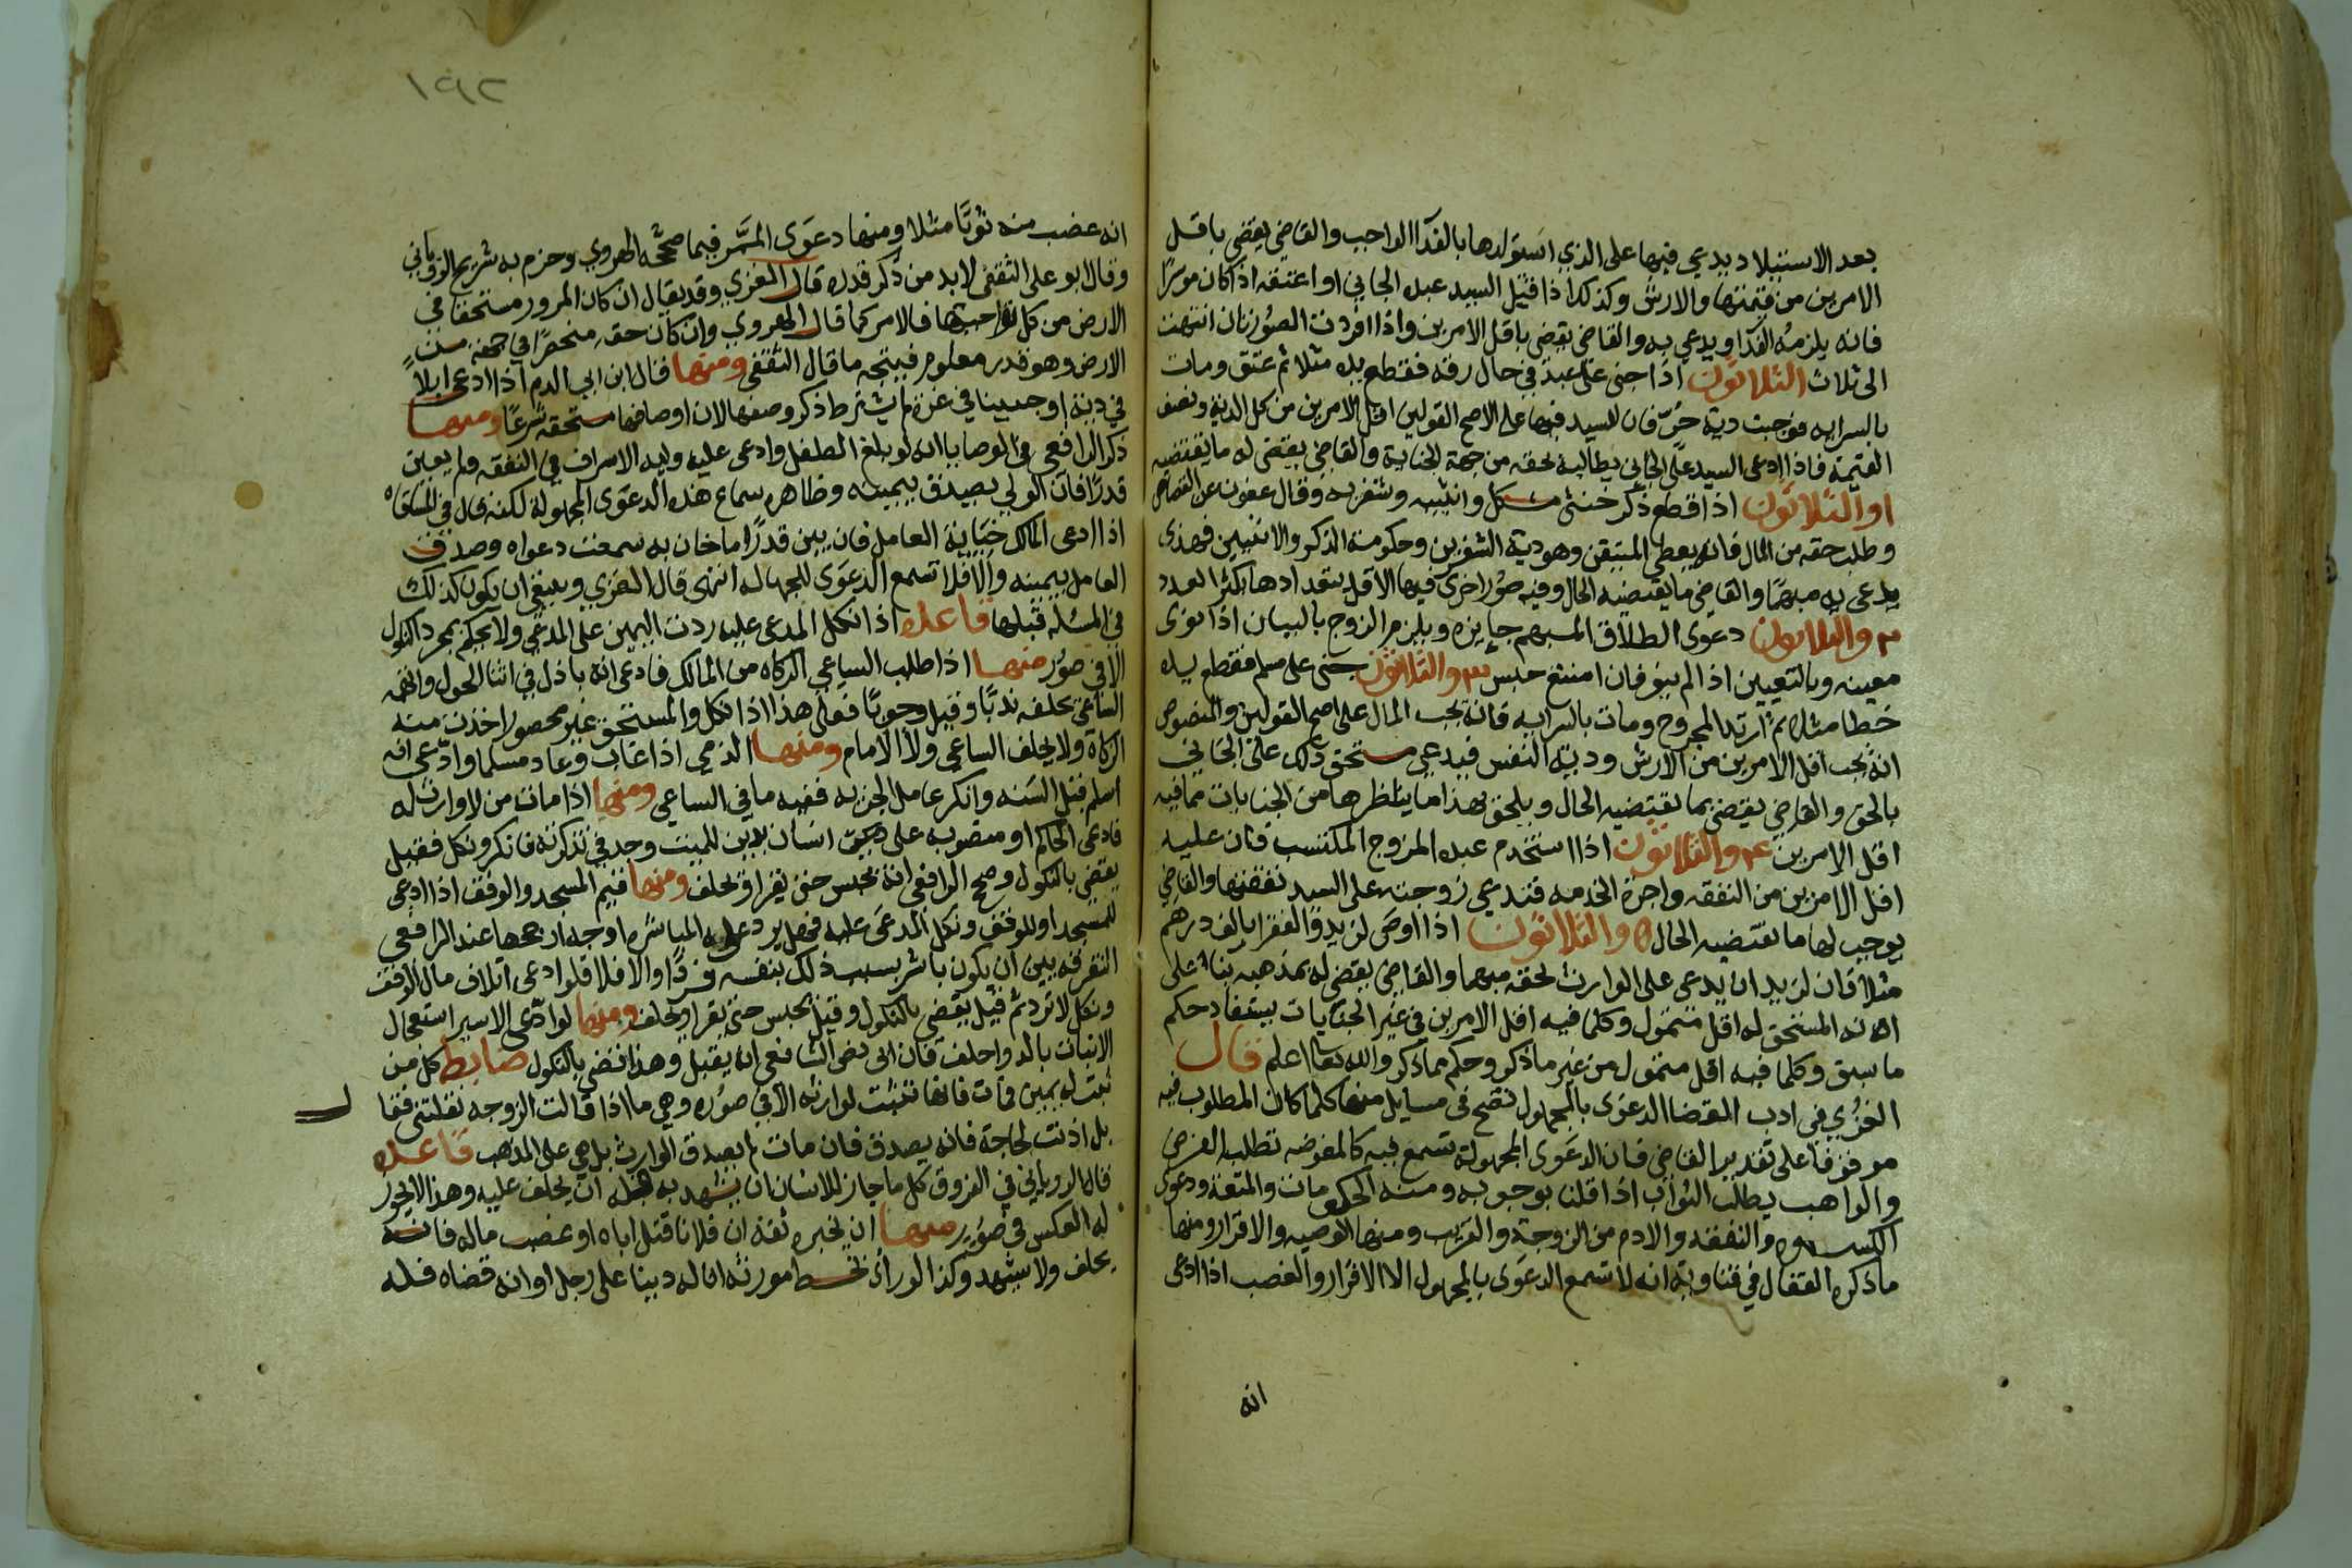 بعد الاستيلاد يدعي فيها على الذي استولدها بالفدا الواجب والقاضي يقضي باقل
الامرين من قيمتها والارش وكذلك اذا قتل السيد عبده الجاني او اعتقه اذا كان موسرًا
فانه يلزمه الفدا ويدعي به والقاضي يقضي باقل الامرين واذا افردت الصورتان انتهت
الى ثلاث الثلاثون اذا جنى على عبد في حال رقه فقطع يده مثلا ثم عتق ومات
بالسرايه فوجبت دية حُرّ فان للسيد فيها على الاصح القولين اقل الامرين من كل الدية ونصف
القيمة فاذا ادعى السيد على الجاني يطالبه بحقه من جهة الجناية والقاضي يقضي له ما يقتضيه
ا والثلاثون اذا قطع ذكر خنثى مشكل وانثييه وشفريه وقال عفوت عن القصاص
وطلب حقه من المال فانه يعطى المتيقن وهو دية الشفرين وحكومة الذكر والانثيين فهذى
يدعي به مبهمًا والقاضي ما يقتضيه الحال وفيه صور اخرى فيها الاقل بتعدادها يكثر العدد
٢ والثلاثون دعوى الطلاق المبهم جايزه ويلزم الزوج بالبيان اذا نوى
معينه وبالتعيين اذا لم ينو فان امتنع حبس ٣ والثلاثون جنى على مسلم فقطع يده
خطا مثلا ثم ارتد المجروح ومات بالسرايه فانه يجب المال على اصح القولين والمنصوص
انه يجب اقل الامرين من الارش ودية النفس فيدعي مستحق ذلك على الجاني
بالحق والقاضي يقضي بما يقتضيه الحال ويلحق بهذا ما يناظرها من الجنايات مما فيه
اقل الامرين ٤ والثلاثون اذا استخدم عبده المزوج المكتسب فان عليه
اقل الامرين من النفقه واجرة الخدمه فتدعي زوجته على السيد نفقتها والقاضي
يوجب لها ما يقتضيه الحال ٥ والثلاثون اذا اوصى لزيد والفقرا بالف درهم
مثلا فان لزيد ان يدعي على الوارث بحقه مبهما والقاضي يقضي له بمذهبه بنا على
انه المستحق له اقل متمول وكلما فيه اقل الامرين في غير الجنايات يستفاد حكم
ما سبق وكلما فيه اقل متمول من غير ما ذكر وحكم مما ذكر والله تعالى اعلم قال
الغزي في ادب القضا الدعوى بالمجهول تصح في مسايل منها كلما كان المطلوب فيه
موقوفا على تقدير القاضي فان الدعوى المجهولة تسمع فيه كالمفوضه تطلب الفرض
والواهب يطلب الثواب اذا قلنا بوجوبه ومنه الحكومات والمتعة ودعوى
الكسوه والنفقه والادم من الزوجة والقريب ومنها الوصيه والاقرار ومنها
ما ذكره القفال في فتاويه انه لا تسمع الدعوى بالمجهول الا الاقرار والغصب اذا ادعى
انه
١٩٢
انه غصب منه ثوبًا مثلا ومنها دعوى الممر فيما صححه الهروي وجزم به شريح الروياني
وقال ابو علي الثقفي لا بد من ذكر قدره قال الغزي وقد يقال ان كان المرور مستحقا في
الارض من كل نواحيها فالامر كما قال الهروي وان كان حقه منحصرًا في جهة من
الارض وهو قدر معلوم فيتجه ما قال الثقفي ومنها قال ابن ابي الدم اذا ادعى ابلاً
في دية او جنينا في غرة لم يشترط ذكر وصفها لان اوصافها مستحقه شرعًا ومنها
ذكر الرافعي في الوصايا انه لو بلغ الطفل وادعى عليه وليه الاسراف في النفقه ولم يعين
قدرًا فان الولي يصدق بيمينه وظاهره سماع هذه الدعوى المجهولة لكنه قال في المساقاه
اذا ادعى المالك خيانة العامل فان بين قدرًا ما خان به سمعت دعواه وصدق
العامل بيمينه والا فلا تسمع الدعوى للجهاله انتهى قال الغزي وينبغي ان يكون كذلك
في المسئلة قبلها قاعده اذا نكل المدعى عليه ردت اليمين على المدعي ولا يحكم بمجرد النكول
الا في صور منها اذا طلب الساعي الزكاه من المالك فادعى انه بادل في اثنا الحول واتهمه
الساعي يحلفه ندبًا وقيل وجوبًا فعلى هذا اذا نكل والمستحق غير محصور اخذت منه
الزكاة ولا يحلف الساعي ولا الامام ومنها الذمي اذا غاب وعاد مسلما وادعى انه
اسلم قبل السنه وانكر عامل الجزيه ففيه ما في الساعي ومنها اذا مات من لا وارث له
فادعى الحاكم او منصوبه على انسان بدين للميت وجد في تذكرته فانكر ونكل فقيل
يقضي بالنكول وصحح الرافعي انه يحبس حتى يقر او يحلف ومنها قيم المسجد والوقف اذا ادعى
للمسجد او للوقف ونكل المدعى عليه فهل يرد على المباشره اوجه ارجحها عند الرافعي
التفرقه بين ان يكون باشر بسبب ذلك بنفسه فردًا والا فلا فلو ادعى اتلاف مال الوقف
ونكل لا ترد ثم قيل يقضي بالنكول وقيل يحبس حتى يقر او يحلف ومنها لو ادعى الاسير استعجال
الانبات بالدوا حلف فان ابى نص الشافعي انه يقبل وهذا قضى بالنكول ضابط كل من
ثبت له يمين فمات فانها تثبت لوارثه الا في صوره وهي ما اذا قالت الزوجه نقلتني فقال
بل اذنت لحاجة فانه يصدق فان مات لم يصدق الوارث بل هي على المذهب قاعده
قال الروياني في الفروق كل ما جاز للانسان ان يشهد به فله ان يحلف عليه وهذا لا يجوز
له العكس في صور منها ان يخبره ثقة ان فلانا قتل اباه او غصب ماله فانه
يحلف ولا يشهد وكذا لو راى بخط مورثه ان له دينا على رجل او انه قضاه فله